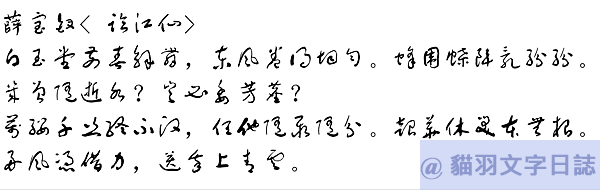 薛宝钗< 临江仙>
白玉堂前春解舞，东风卷得均匀。蜂围蝶阵乱纷纷。
几曾随逝水？岂必委芳尘？
万缕千丝终不改，任他随聚随分。韶华休笑本无根。
好风凭借力，送我上青云。
@ 貓羽文字日誌